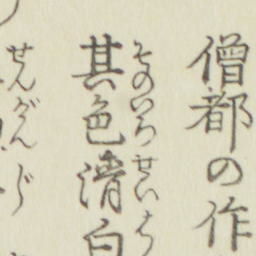 僧都の作
其色清白
そのいろせいは
せんがん